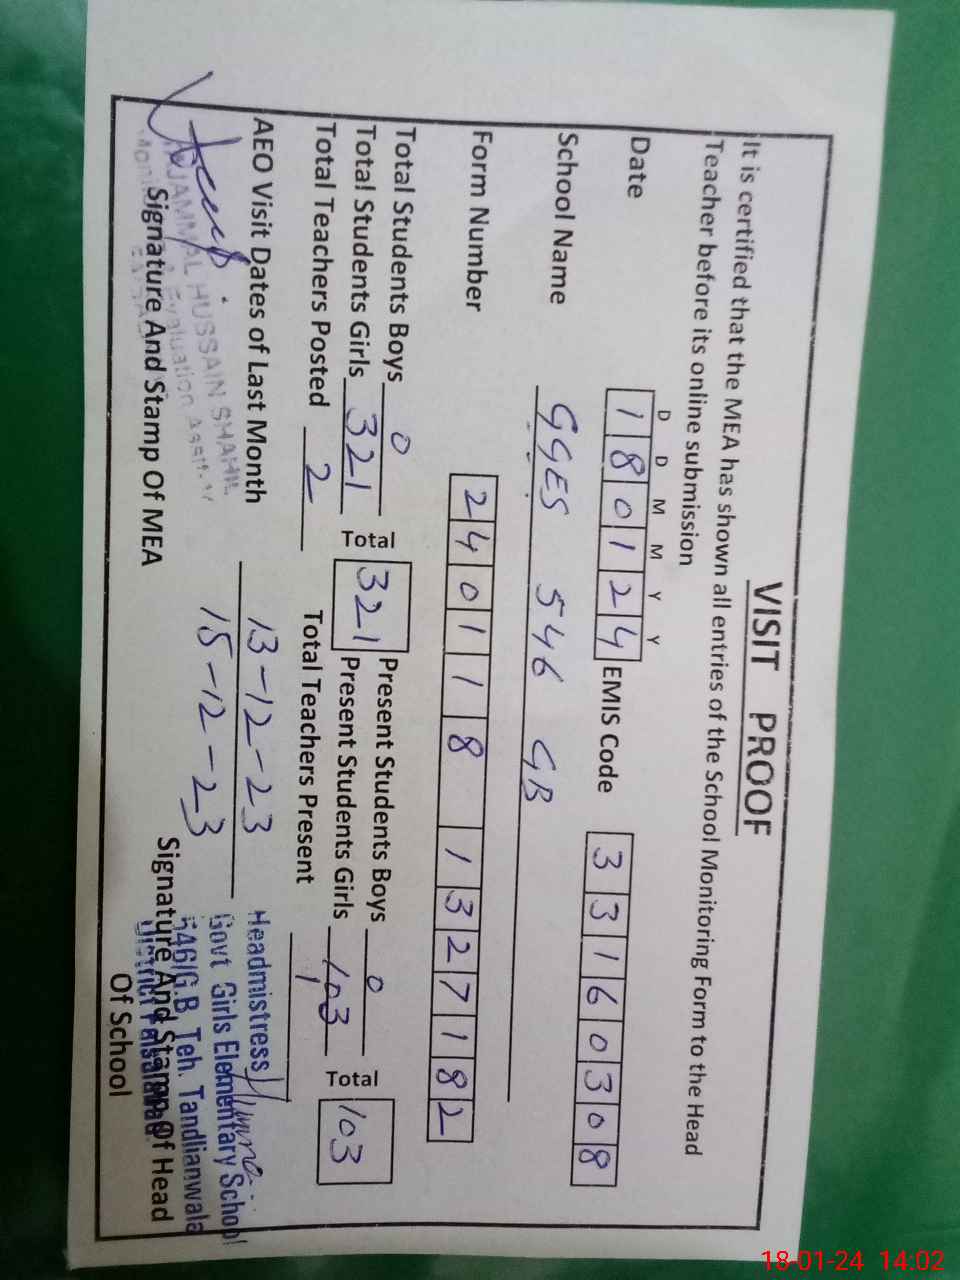 VISIT PROOF
It is certified that the MEA has shown all entries of the School Monitoring Form to the Head
Teacher before its online submission
D D M M Y Y
Date 180124 EMIS Code 33160308
School Name GGES 546 GB
Form Number 240118 1327182
Total Students Boys 0 Present Students Boys 0
Total Students Girls 321 Total 321 Present Students Girls 103 Total 103
Total Teachers Posted 2 Total Teachers Present 1
AEO Visit Dates of Last Month 13-12-23
15-12-23
HUSSAIN SHAHI
Evaluation Asstt.
Signature And Stamp Of MEA
Headmistress
Govt Girls Elementary School
546/G.B Teh. Tandlianwala
District Faisalabad
Signature And Stamp Of Head
Of School
18-01-24 14:02